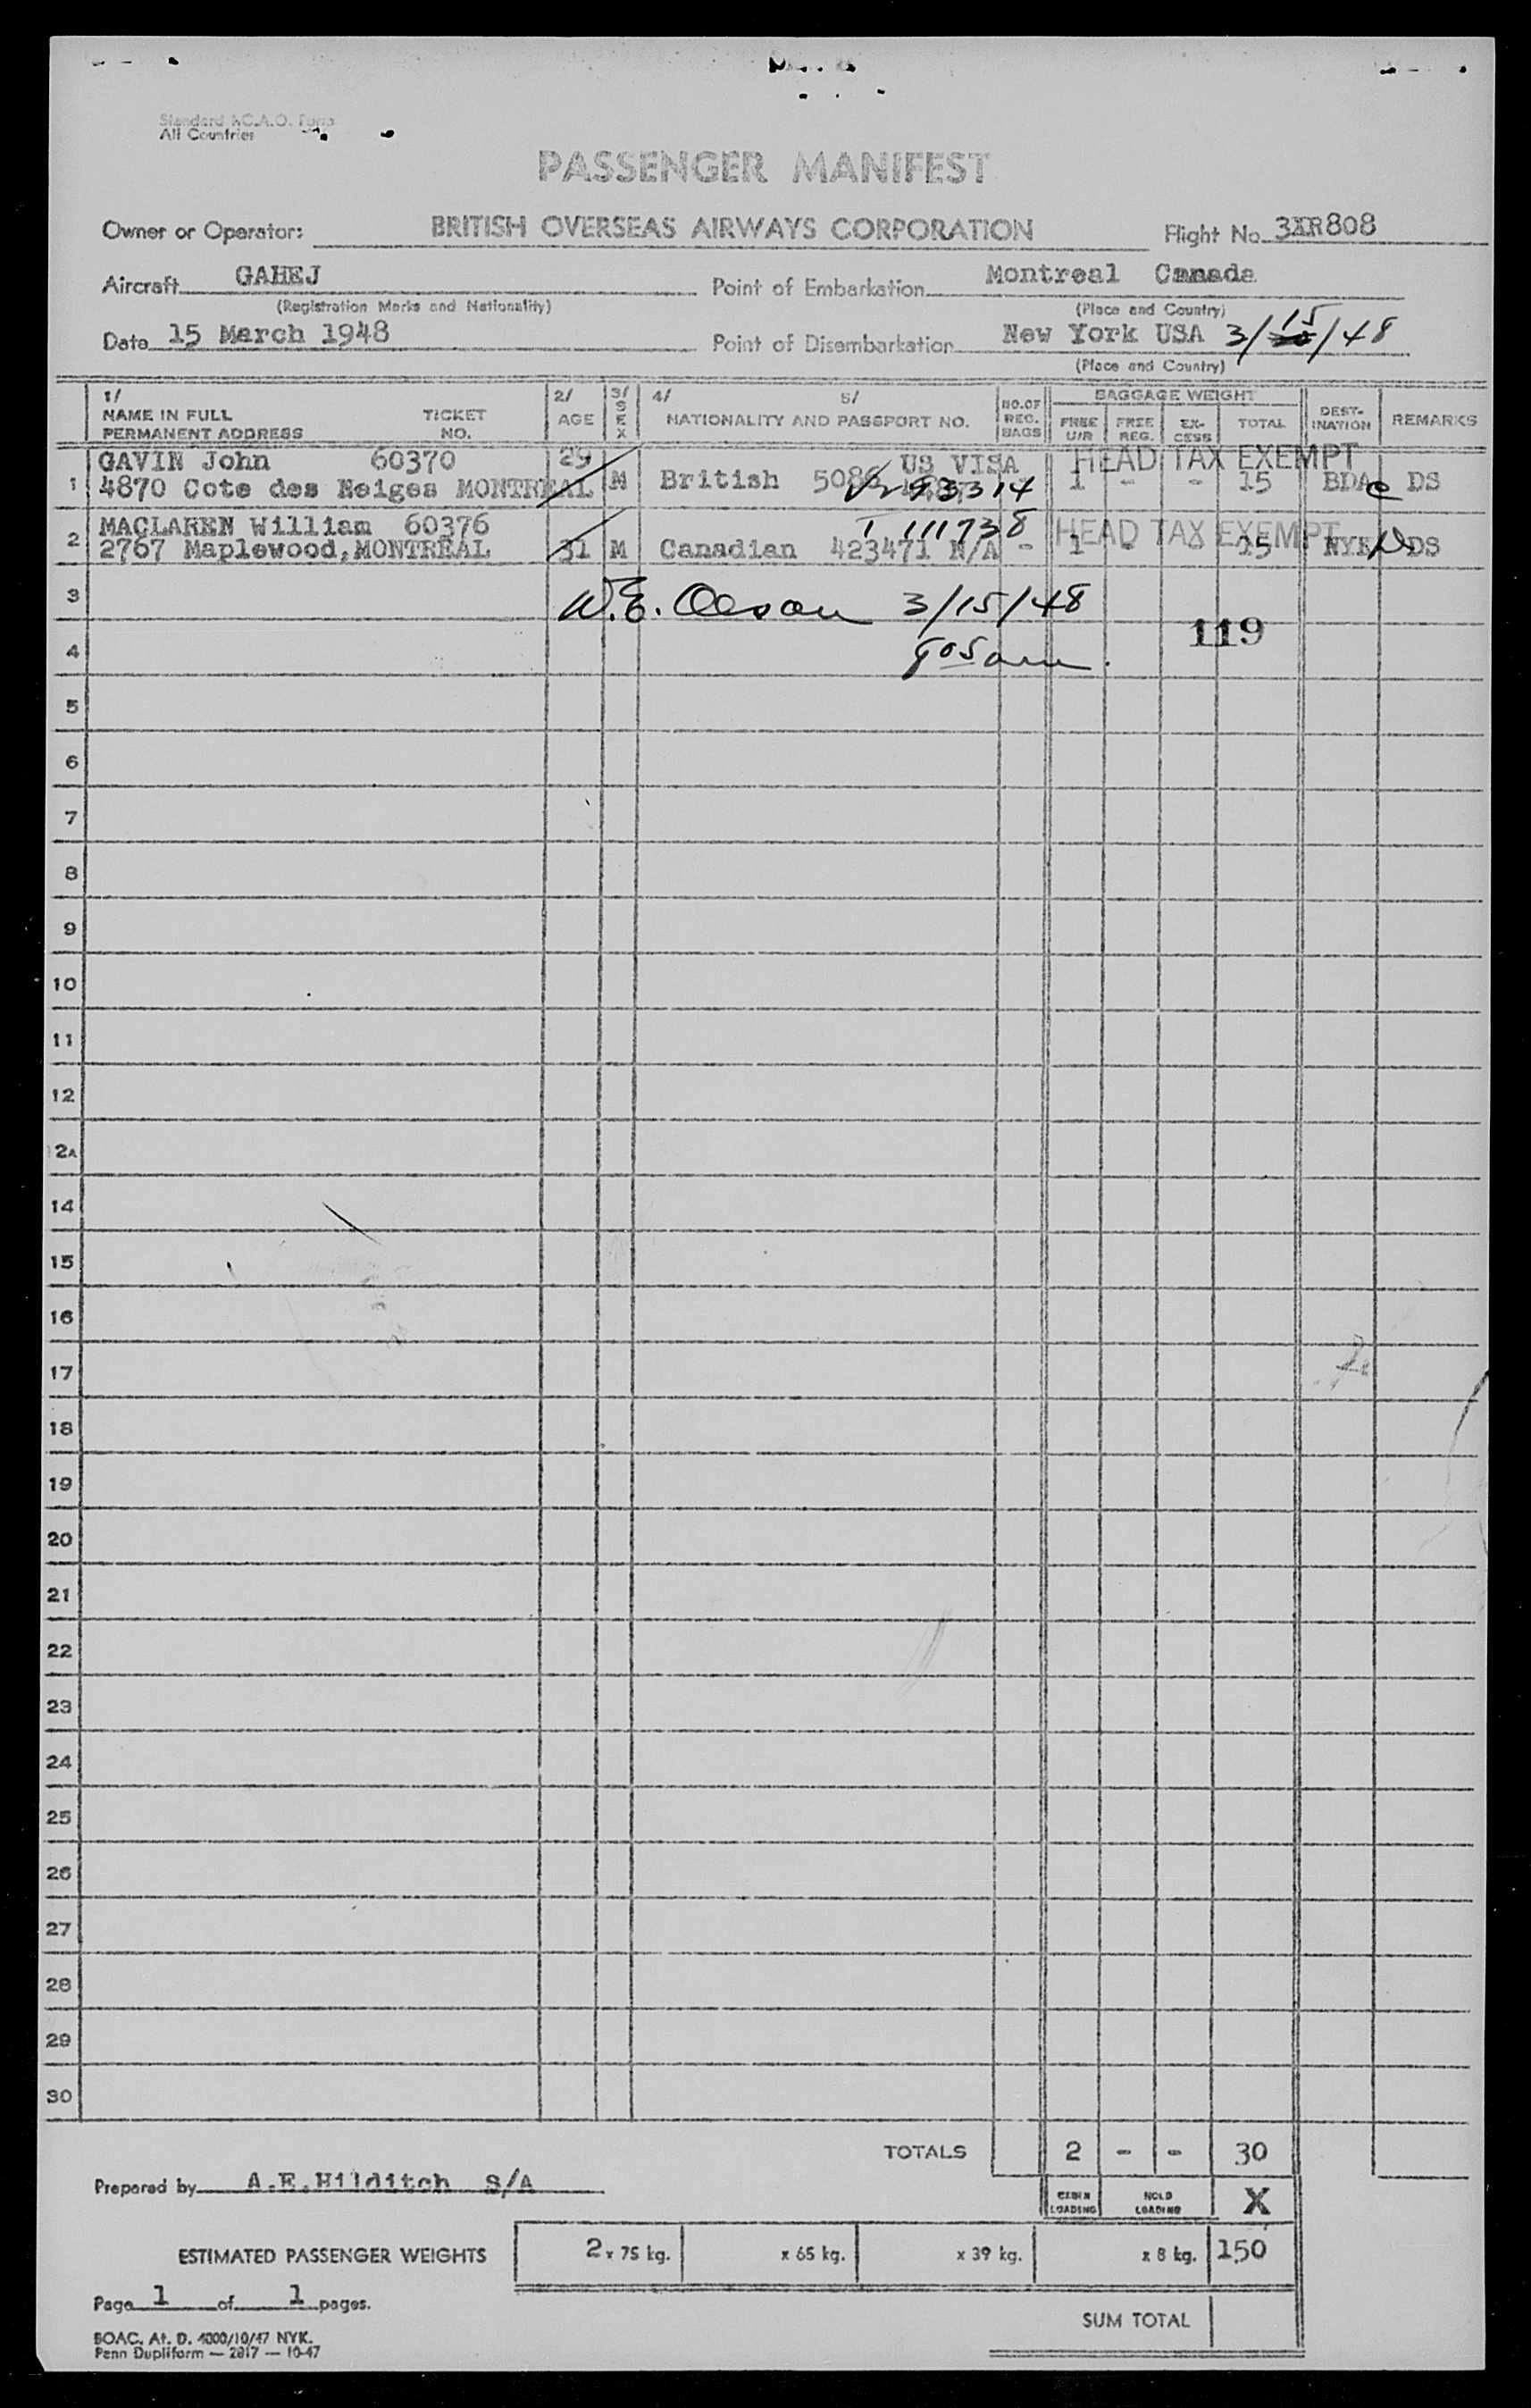 Standard I.C.A.O. Form
All Countries
PASSENGER MANIFEST
Owner or Operator: BRITISH OVERSEAS AIRWAYS CORPORATION Flight No. 3XR808
Aircraft GAHEJ Point of Embarkation Montreal Canada
(Registration Marks and Nationality) (Place and Country)
Date 15 March 1948 Point of Disembarkation New York USA 3/15/48
(Place and Country)
1/ 2/ 3/ 4/ 5/ NO. OF BAGGAGE WEIGHT
NAME IN FULL TICKET AGE SEX NATIONALITY AND PASSPORT NO. REG. FREE FREE EX- TOTAL DEST- REMARKS
PERMANENT ADDRESS NO. BAGS U/R REG. CESS INATION
GAVIN John 60370 29 US VISA HEAD TAX EXEMPT
1 4870 Cote des Neiges MONTREAL M British 5086 93314 1 - - 15 BDA DS
MACLAREN William 60376 T 111738 HEAD TAX EXEMPT
2 2767 Maplewood, MONTREAL 31 M Canadian 423471 N/A - 1 - - 15 NYK DS
3 W.E. Olson 3/15/48
119
4 905 am.
5
6
7
8
9
10
11
12
12A
14
15
16
17
18
19
20
21
22
23
24
25
26
27
28
29
30
TOTALS 2 - - 30
Prepared by A.E.Hilditch S/A
CABIN LOADING HOLD LOADING X
ESTIMATED PASSENGER WEIGHTS 2 x 75 kg. x 65 kg. x 39 kg. x 8 kg. 150
Page 1 of 1 pages.
SUM TOTAL
BOAC. At. D. 4000/10/47 NYK.
Penn Dupliform — 2817 — 10-47